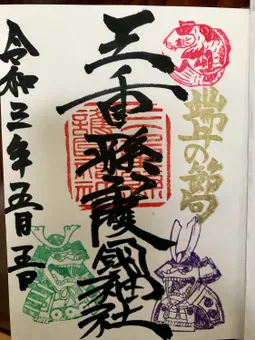 端午の節句
三重縣護國神社
令和三年五月五日